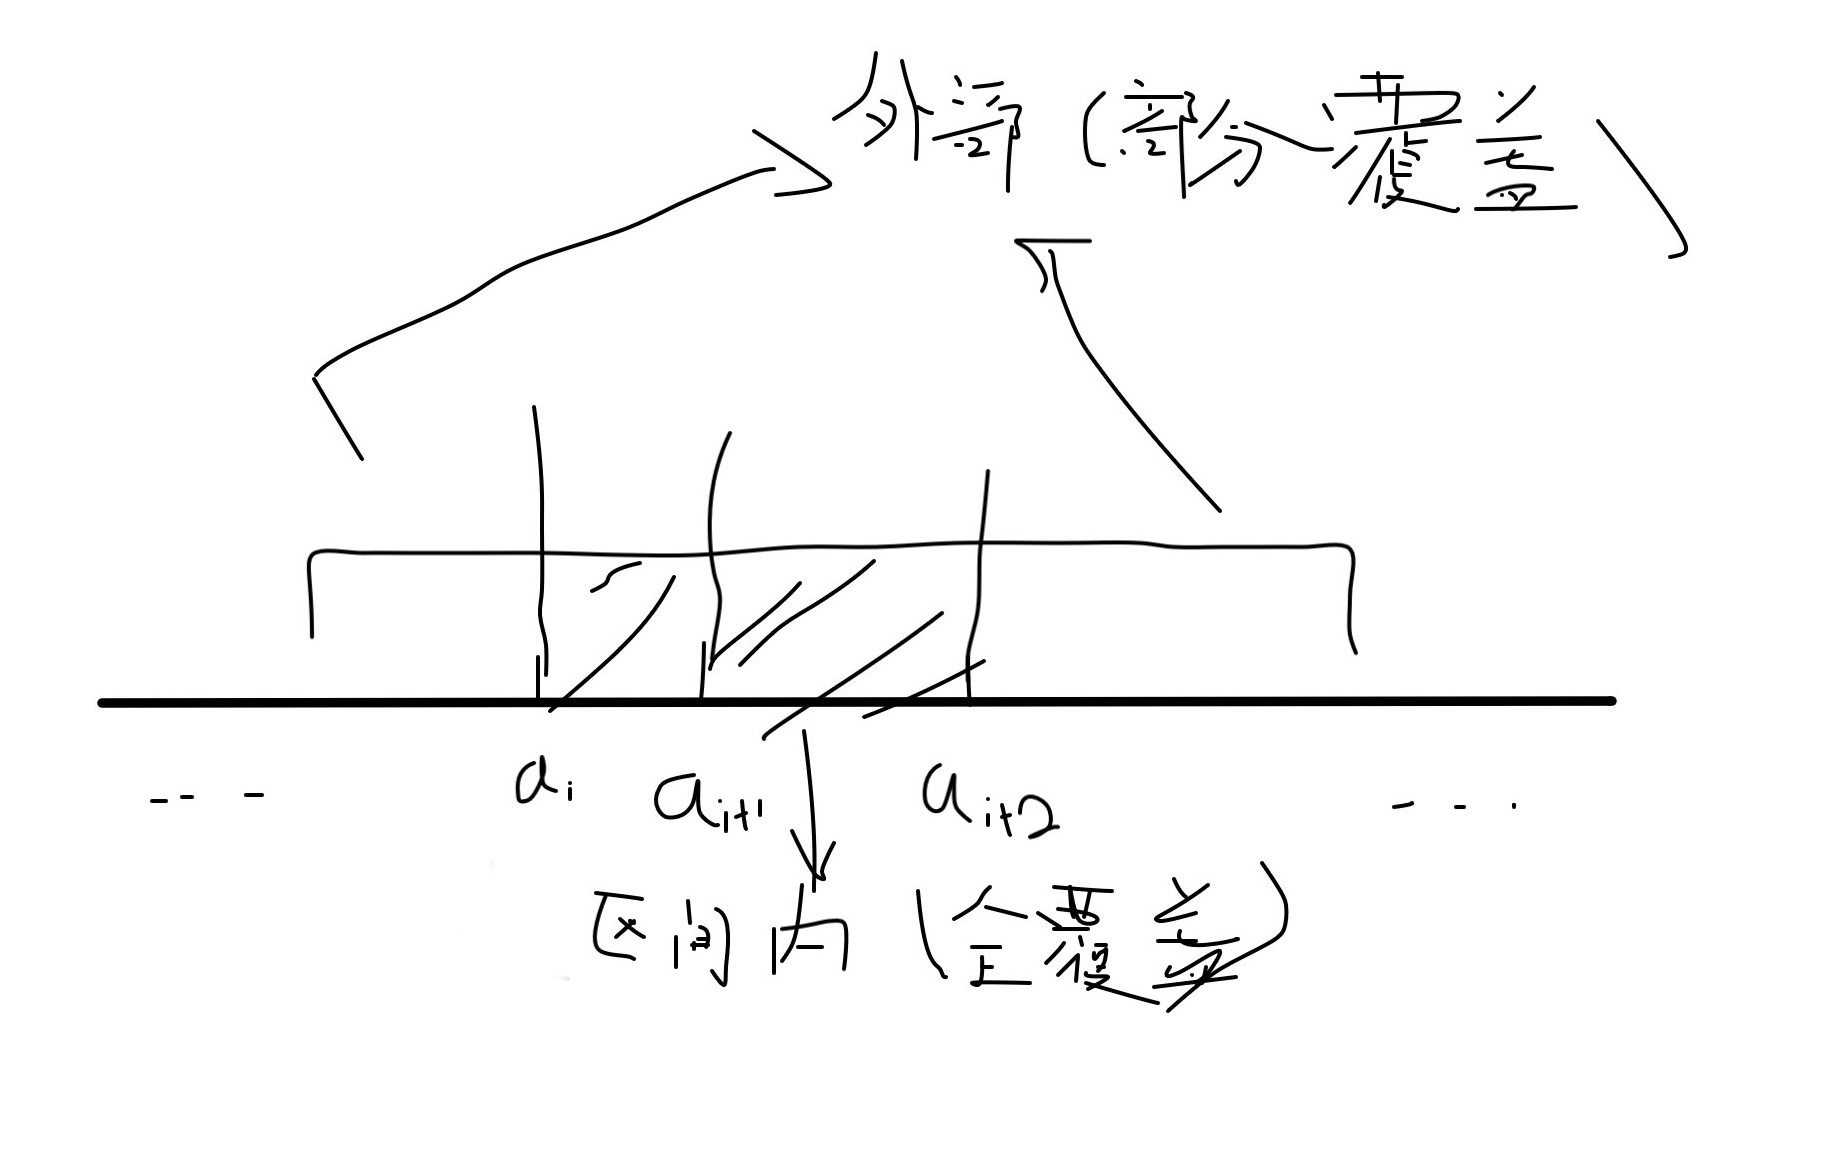 外部 (部分覆盖)
-- - aᵢ aᵢ₊₁ aᵢ₊₂ - - .
区间内 (全覆盖)